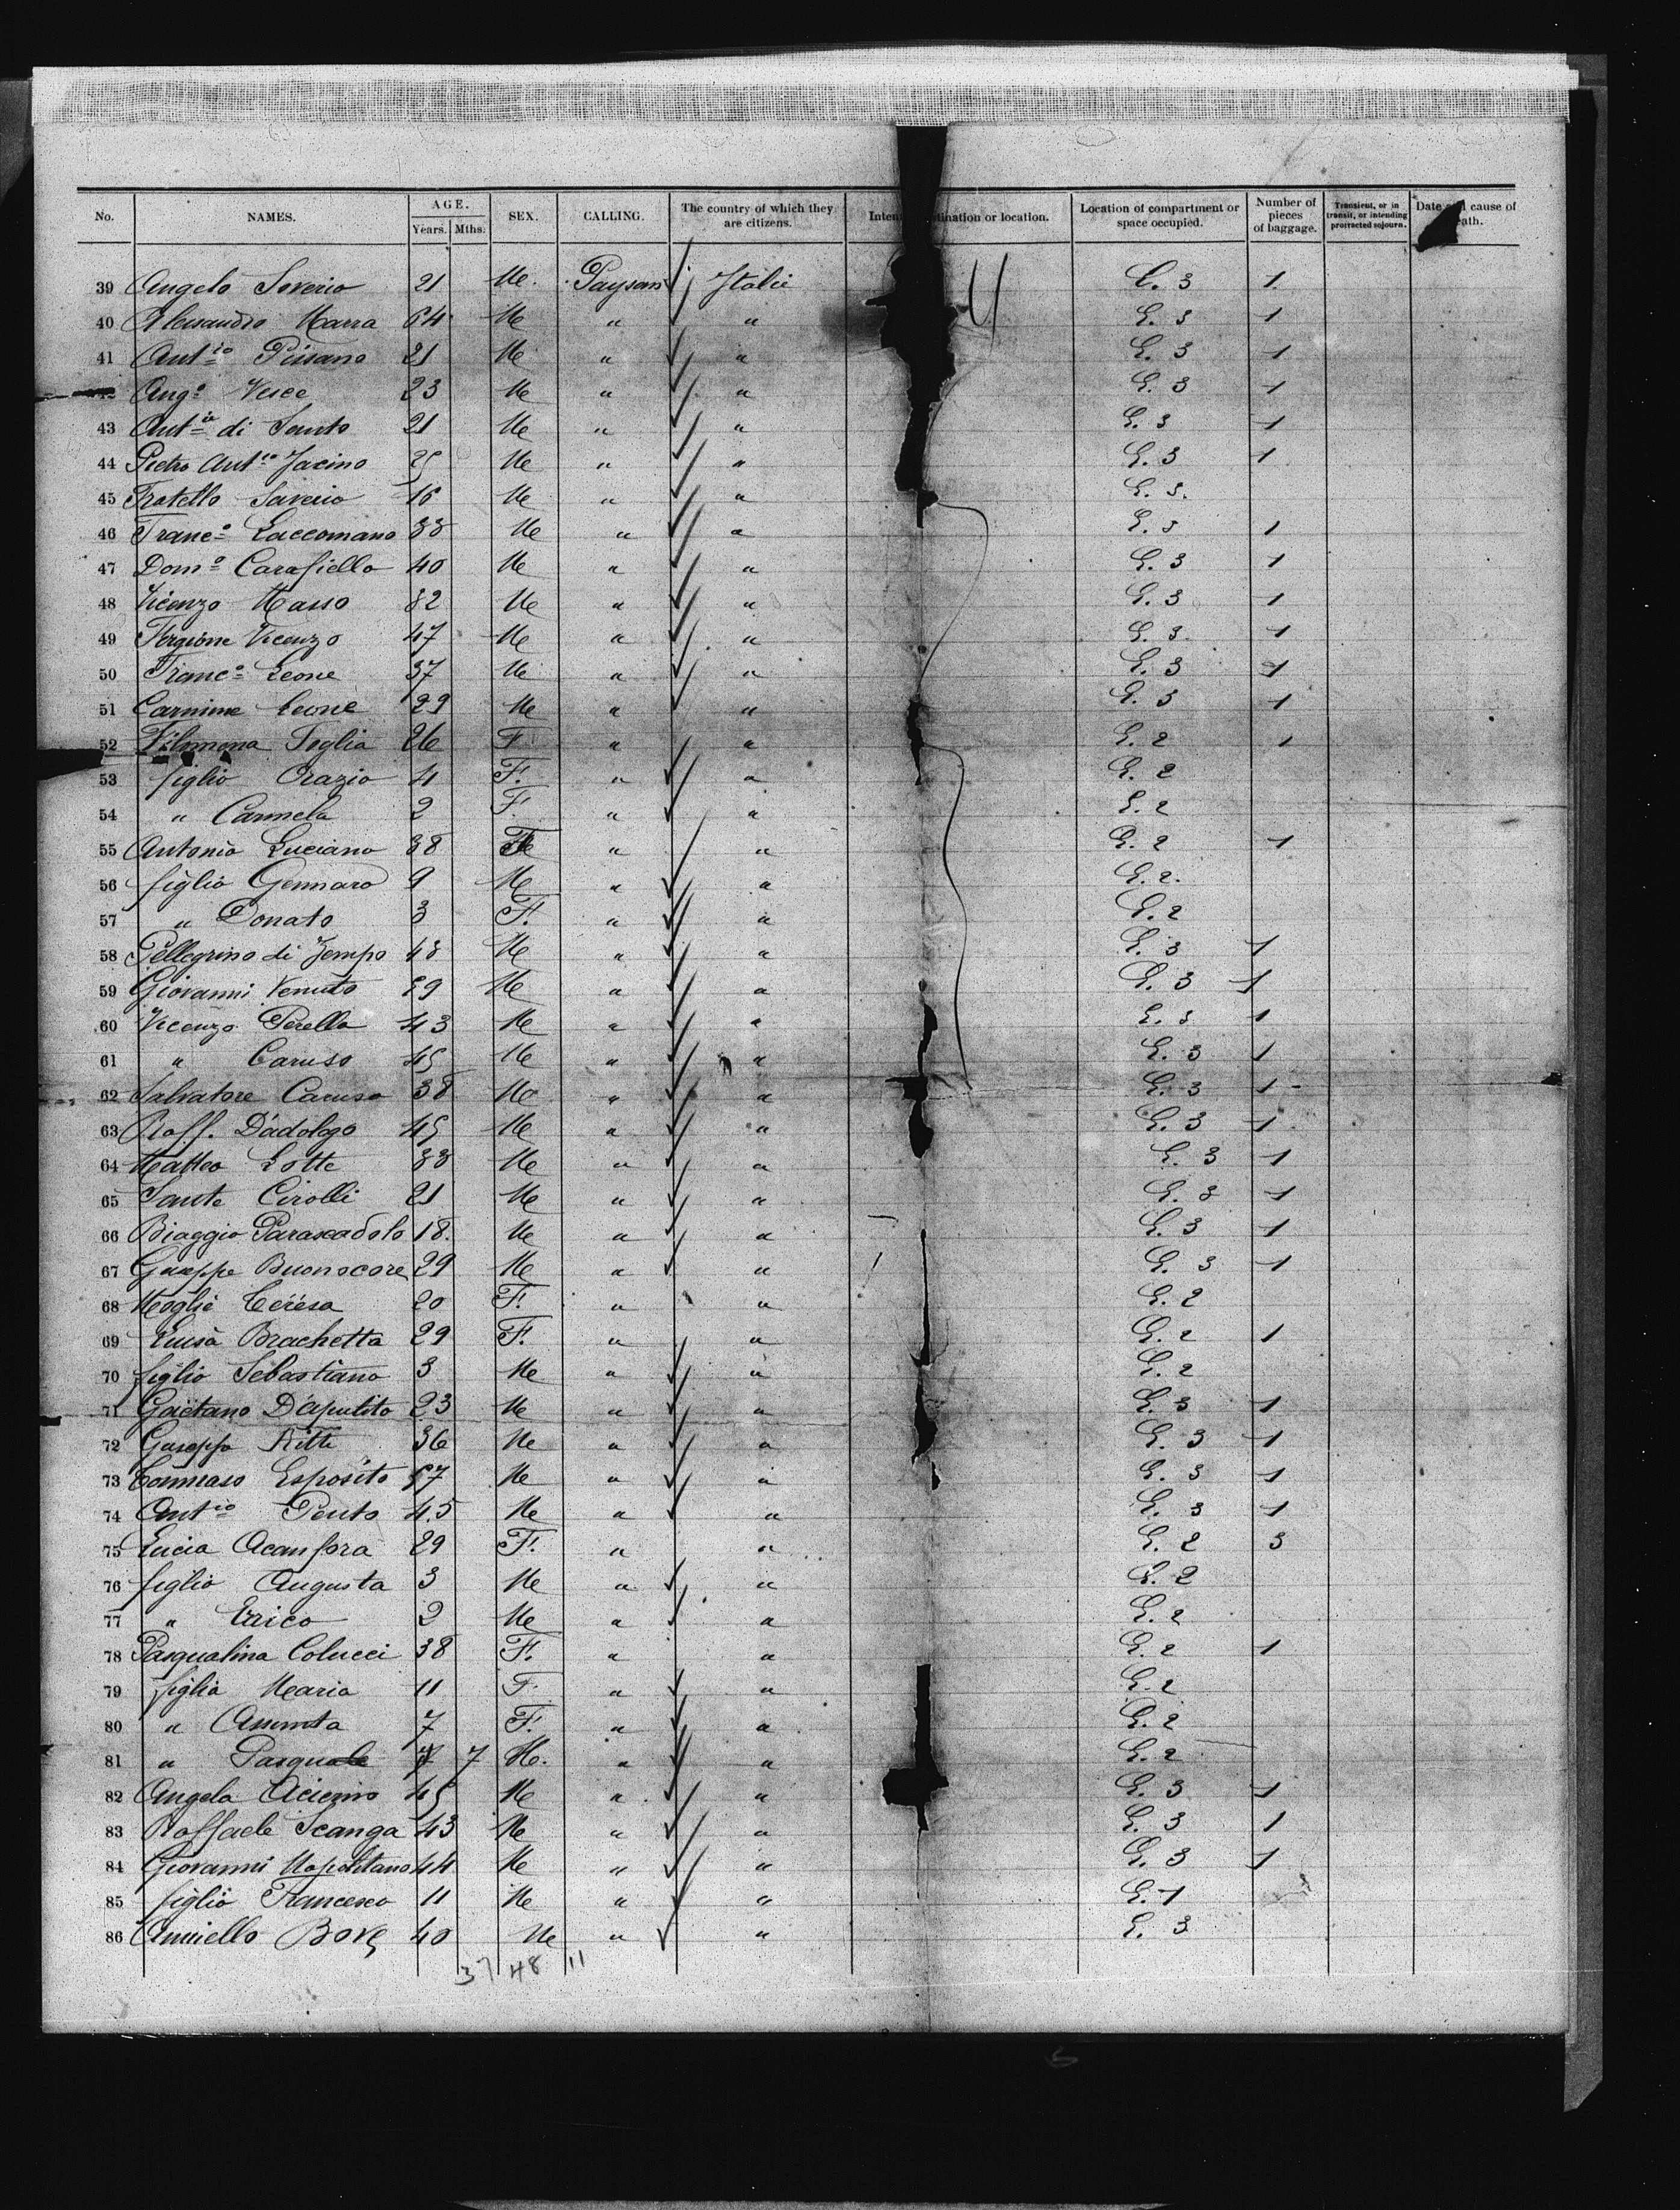 No. NAMES. AGE. Years. Mths. SEX. CALLING. The country of which they are citizens. Inten tination or location. Location of compartment or space occupied. Number of pieces of baggage. Transient, or in transit, or intending protracted sojourn. Date and cause of eath.
39 Angelo Soverio 21 Me. Paysan Italie 3 1
40 Alessandro Marra 64 Me " " E. 3 1
41 Antio Pisano 21 Me " " E. 3 1
Ango Vesce 23 Me " " E. 3 1
43 Antio di Santo 21 Me " " E. 3 1
44 Pietro Antio Jacino Me " " E. 3 1
45 Fratello Saverio 16 Me " " E. 3.
46 Franco Laccomano 33 Me " " E. 3 1
47 Domo Carafiello 40 Me " " E. 3 1
48 Vicenzo Masso 32 Me " " E. 3 1
49 Vicenzo 47 Me " " E. 3 1
50 Franco Leone 37 Me " " E. 3 1
51 Carmine Leone 29 Me " " E. 3 1
52 Filomena Teglia 26 F " " E. 2 1
53 figlio Orazio 4 F. " " E. 2
54 " Carmela 2 F. " " E. 2
55 Antonia Luciano 38 " " E. 2 1
56 figlio Gennaro 9 Me " " E. 2.
57 " Donato 3 F. " " E. 2
58 Pellegrino di Jempo 48 Me " " E. 3 1
59 Giovanni Venuto Me " " E. 3 1
60 Vicenzo Perella 43 Me " " E. 3 1
61 " Caruso 45 Me " " E. 3 1
62 Salvatore Caruso 38 Me " " E. 3 1
63 Raff. D'adologo 45 Me " " E. 3 1
64 Matteo Lotte 33 Me " " E. 3 1
65 Sante Cirolli 21 Me " " E. 3 1
66 Biaggio Parascadolo 18. Me " " E. 3 1
67 Guseppe Buonocore 29 Me " " E. 3 1
68 Moglie Teresa 20 F. " " E. 2
69 Luisa Brachetta 29 F. " " E. 2 1
70 figlio Sebastiano 3 Me " " E. 2
71 Gaetano D'apulito 23 Me " " E. 3 1
72 Guseppe Nitti 36 Me " " E. 3 1
73 Tommaso Esposito 57 Me " " E. 3 1
74 Antio Pento 45 Me " " E. 3 1
75 Lucia Acanfora 29 F. " " E. 2 3
76 figlio Augusta 3 Me " " E. 2
77 " Erico 2 Me " " E. 2
78 Pasqualina Colucci 38 F. " " E. 2 1
79 figlia Maria 11 F. " " E. 2
80 " Assunta 7 F. " " E. 2
81 " Pasquale 7 M. " " E. 2
82 Angela Acierno 45 Me " " E. 3 1
83 Raffaele Scanga 43 Me " " E. 3 1
84 Giovanni Napolitano 44 Me " " E. 3 1
85 figlio Francesco 11 Me " " E. 1
86 Aniello Bove 40 Me " " E. 3
37 48 11